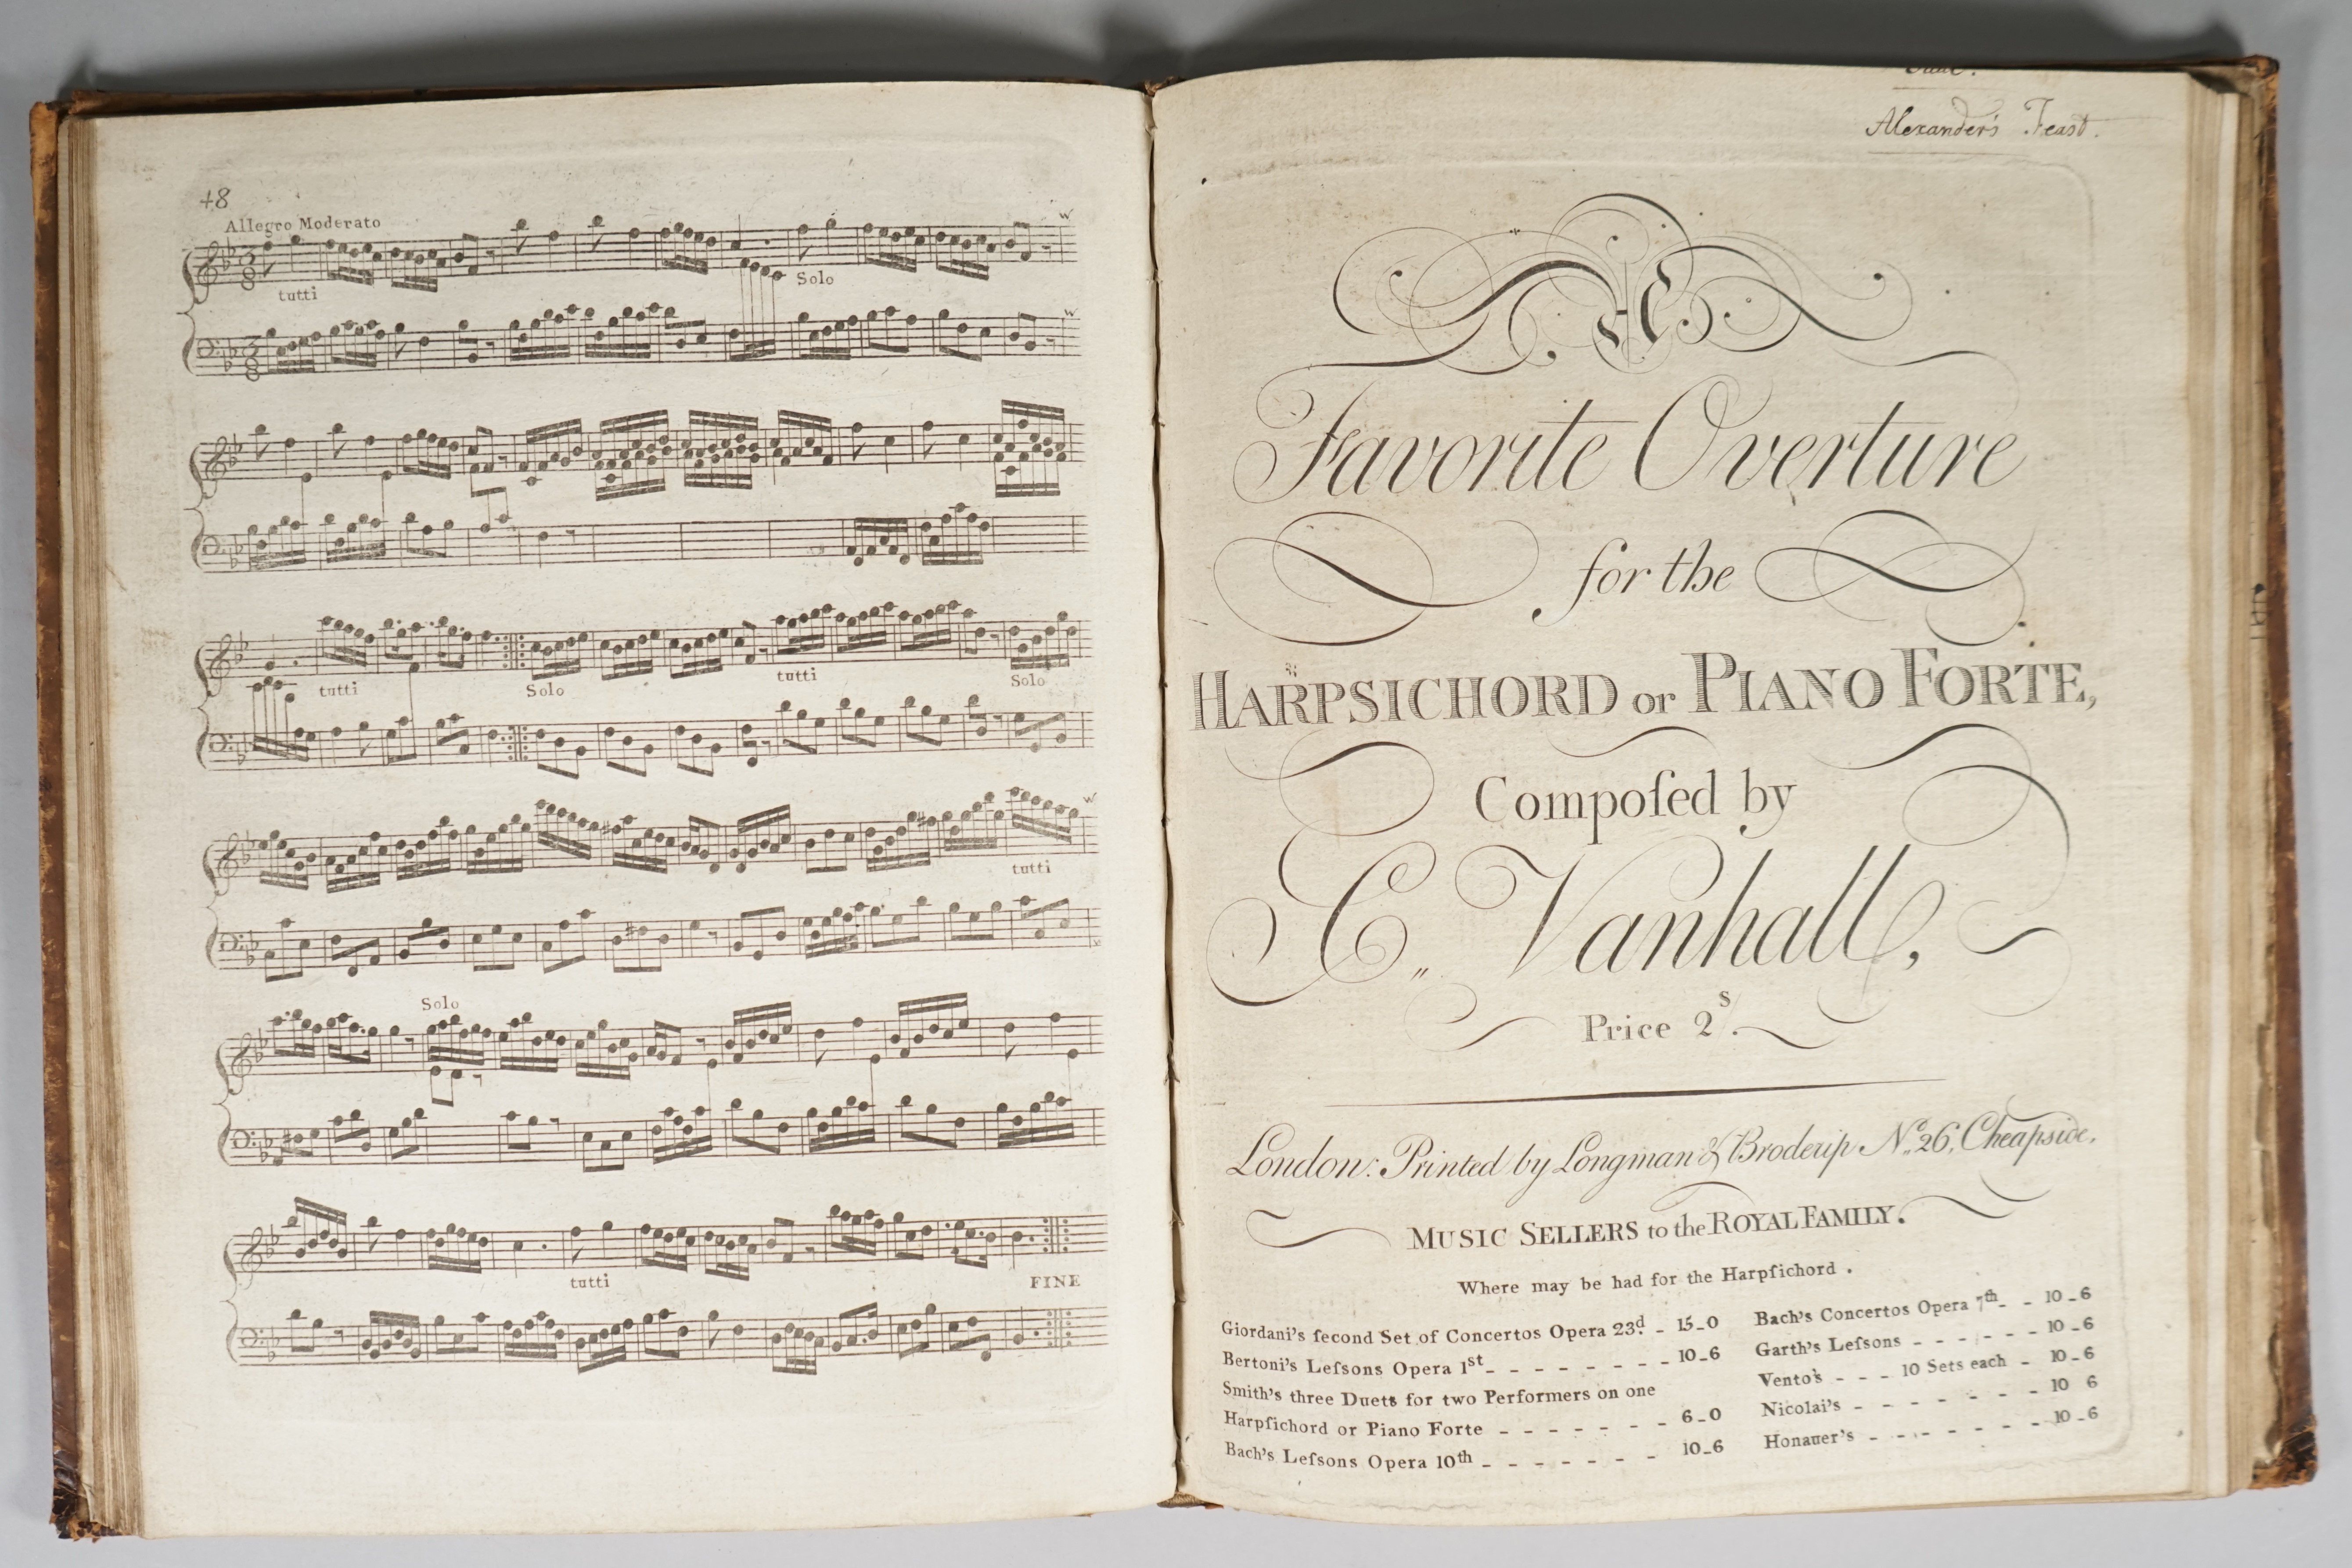 48
Allegro Moderato
tutti
Solo
tutti
Solo
tutti
Solo
tutti
Solo
tutti
FINE
Alexander's Feast.
A
Favorite Overture
for the
HARPSICHORD or PIANO FORTE,
Compoſed by
C,, Vanhall,
Price 2s.
London: Printed by Longman & Broderip No. 26, Cheapside,
MUSIC SELLERS to the ROYAL FAMILY.
Where may be had for the Harpſichord .
Giordani's ſecond Set of Concertos Opera 23d. - 15-0
Bertoni's Leſsons Opera 1st - - - - - - - - 10-6
Smith's three Duets for two Performers on one
Harpſichord or Piano Forte - - - - - - - 6-0
Bach's Leſsons Opera 10th - - - - - - - 10-6
Bach's Concertos Opera 7th - - 10-6
Garth's Leſsons - - - - - - 10-6
Vento's - - - 10 Sets each - 10-6
Nicolai's - - - - - - - 10 6
Honauer's - - - - - - - 10-6